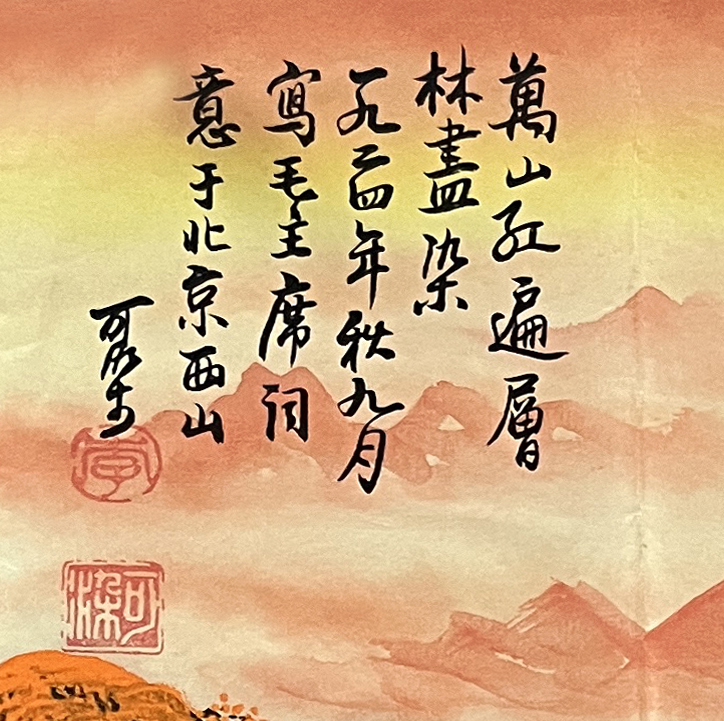 萬山紅遍層
林盡染
一九二四年秋九月
寫毛主席詞
意于北京西山
可染
李
可染